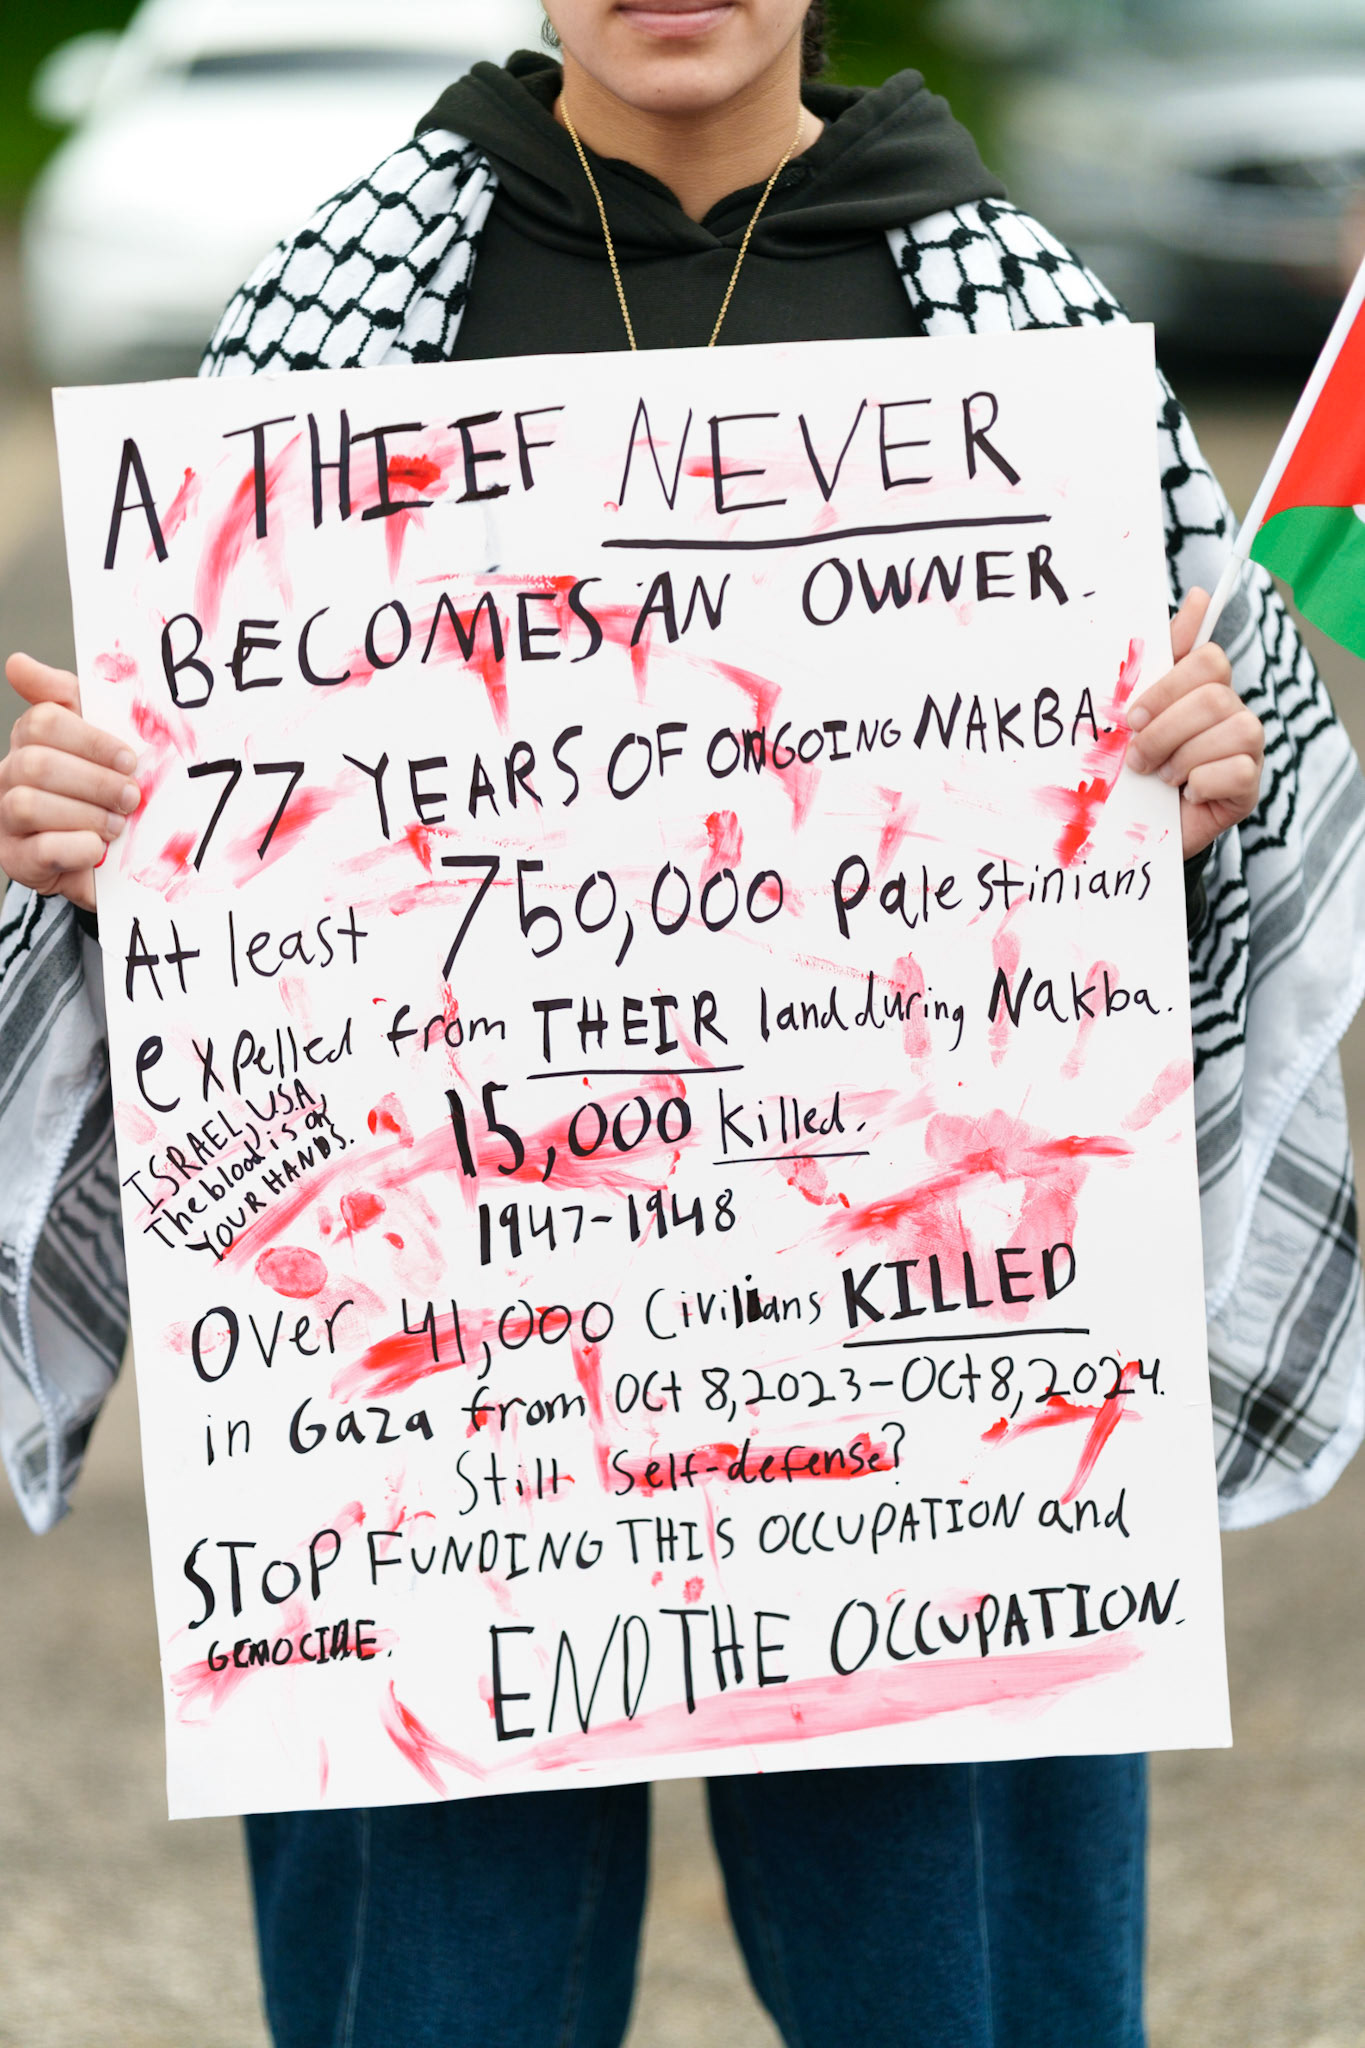 A THIEF NEVER
BECOMES AN OWNER.
77 YEARS OF ONGOING NAKBA.
At least 750,000 Palestinians
expelled from THEIR land during Nakba.
ISRAEL, U.S.A,
The blood is on
YOUR HANDS.
15,000 killed.
1947-1948
Over 41,000 Civilians KILLED
in Gaza from Oct 8, 2023-Oct 8, 2024.
Still Self-defense?
STOP FUNDING THIS OCCUPATION and
GENOCIDE.
END THE OCCUPATION.